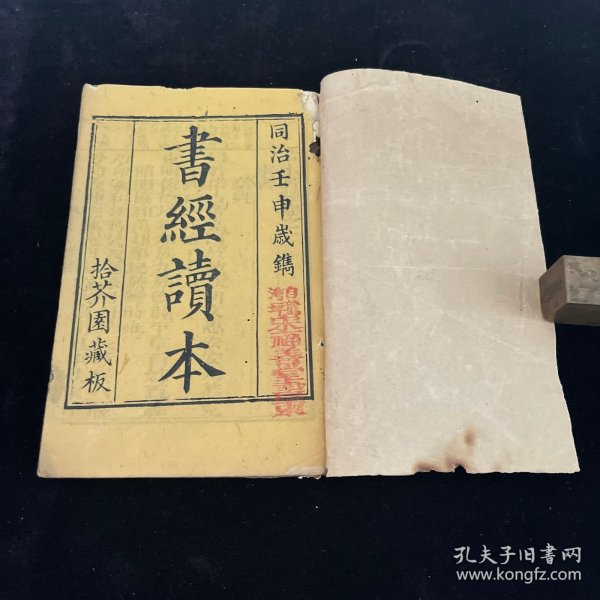 同治壬申歲鐫
書經讀本
拾芥園藏板
孔夫子旧书网
www.kongfz.com